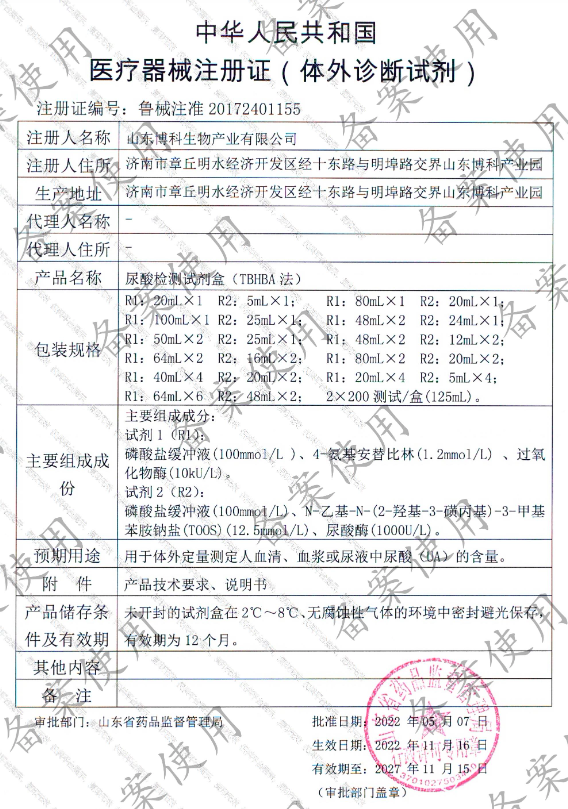 中华人民共和国
医疗器械注册证（体外诊断试剂）
注册证编号：鲁械注准 20172401155
注册人名称 山东博科生物产业有限公司
注册人住所 济南市章丘明水经济开发区经十东路与明埠路交界山东博科产业园
生产地址 济南市章丘明水经济开发区经十东路与明埠路交界山东博科产业园
代理人名称 -
代理人住所 -
产品名称 尿酸检测试剂盒（TBHBA 法）
包装规格
R1：20mL×1 R2：5mL×1； R1：80mL×1 R2：20mL×1；
R1：100mL×1 R2：25mL×1； R1：48mL×2 R2：24mL×1；
R1：50mL×2 R2：25mL×1； R1：48mL×2 R2：12mL×2；
R1：64mL×2 R2：16mL×2； R1：80mL×2 R2：20mL×2；
R1：40mL×4 R2：20mL×2； R1：20mL×4 R2：5mL×4；
R1：64mL×6 R2：48mL×2； 2×200 测试/盒(125mL)。
主要组成成份
主要组成成分：
试剂 1（R1）：
磷酸盐缓冲液(100mmol/L )、4-氨基安替比林(1.2mmol/L) 、过氧
化物酶(10kU/L)。
试剂 2（R2）：
磷酸盐缓冲液(100mmol/L)、N-乙基-N-(2-羟基-3-磺丙基)-3-甲基
苯胺钠盐(TOOS)(12.5mmol/L)、尿酸酶(1000U/L)。
预期用途 用于体外定量测定人血清、血浆或尿液中尿酸（UA）的含量。
附 件 产品技术要求、说明书
产品储存条 未开封的试剂盒在 2℃～8℃、无腐蚀性气体的环境中密封避光保存，
件及有效期 有效期为 12 个月。
其他内容
备 注
审批部门：山东省药品监督管理局 批准日期：2022 年 05 月 07 日
生效日期：2022 年 11 月 16 日
有效期至：2027 年 11 月 15 日
（审批部门盖章）
备案使用